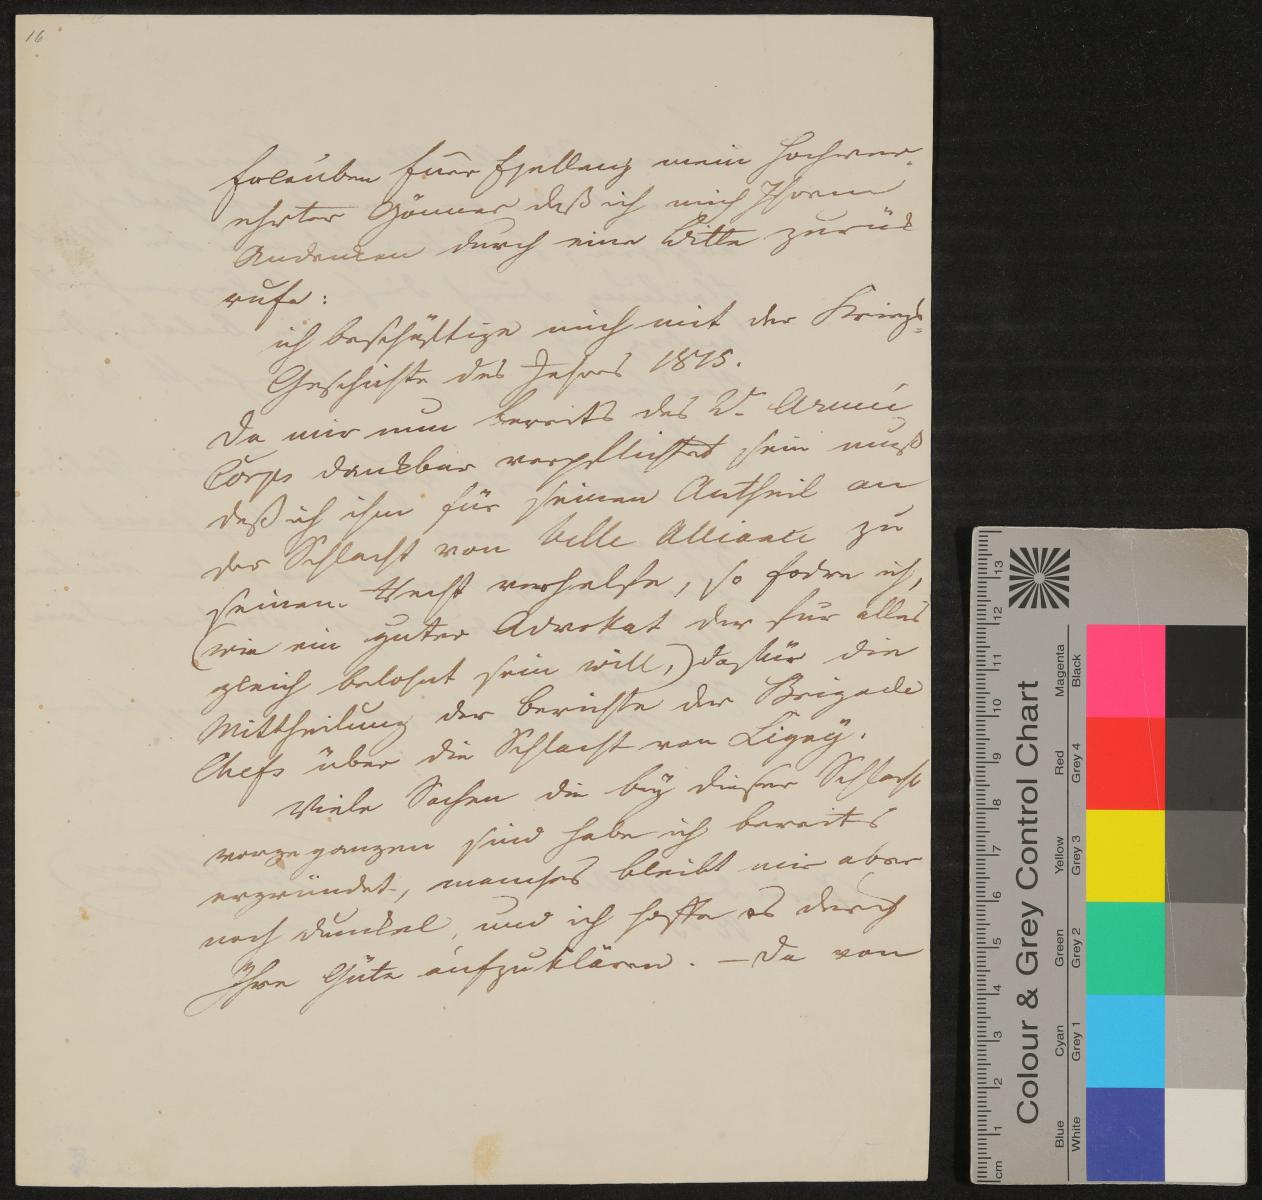 16
Erlauben Euer Exellenz mein Hochver-
ehrter Gönner daß ich mich Ihrem
Andenken durch eine Bitte zurück
rufe:
ich beschäftige mich mit der Kriegs=
Geschichte des Jahres 1815.
Da mir nun bereits das 2te Armée
Corps dankbar verpflichtet sein muß
daß ich ihm für seinen Antheil an
der Schlacht von belle Alliance zu
seinem Recht verhelfe, so fodre ich,
(wie ein guter Advokat der für alles
gleich belohnt sein will,) dafür die
Mittheilung der berichte der Brigade
Chefs über die Schlacht von Ligny.
Viele Sachen die bey dieser Schlacht
vorgegangen sind habe ich bereits
ergründet, manches bleibt mir aber
noch dunkel, und ich hoffe es durch
Ihre Güte aufzuklären. – Da von
Colour & Grey Control Chart
Blue Cyan Green Yellow Red Magenta
White Grey 1 Grey 2 Grey 3 Grey 4 Black
cm 1 2 3 4 5 6 7 8 9 10 11 12 13